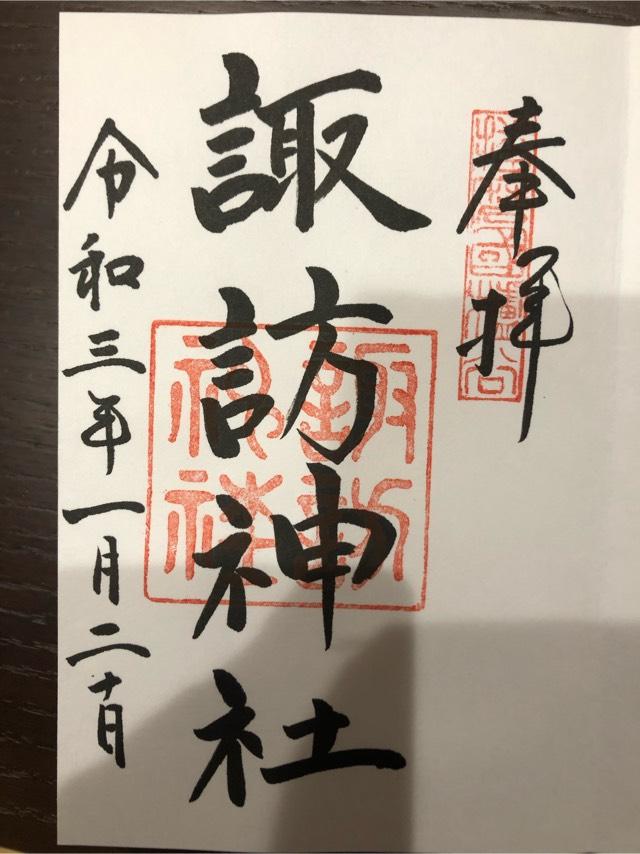 奉拝
諏訪神社
諏訪神社
令和三年一月二十日